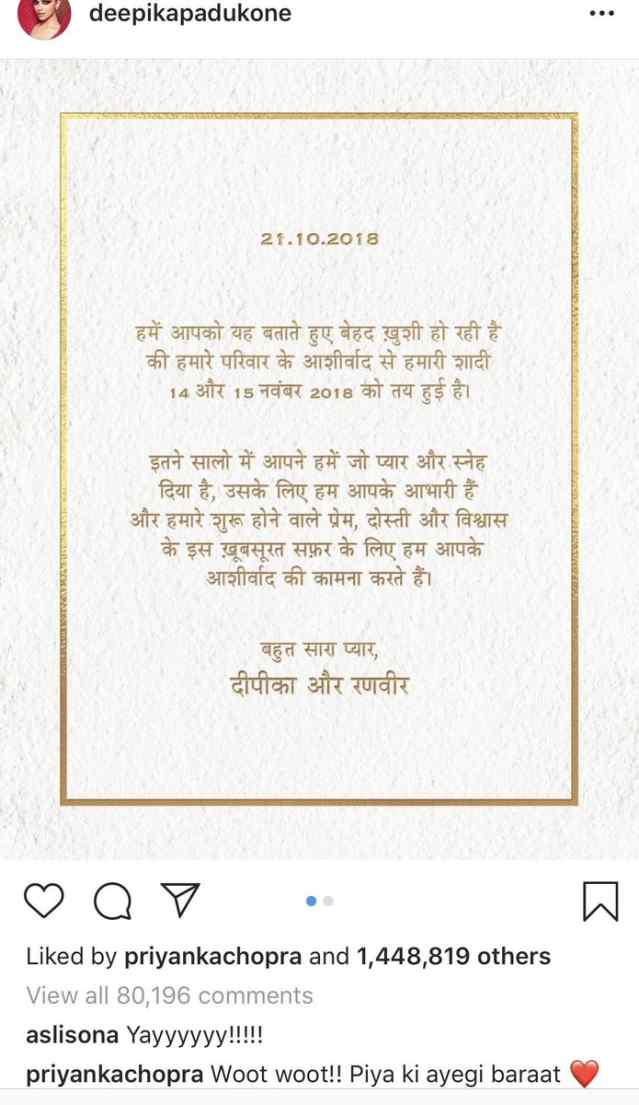 deepikapadukone
21.10.2018
हमें आपको यह बताते हुए बेहद ख़ुशी हो रही है
की हमारे परिवार के आशीर्वाद से हमारी शादी
14 और 15 नवंबर 2018 को तय हुई है।
इतने सालो में आपने हमें जो प्यार और स्नेह
दिया है, उसके लिए हम आपके आभारी हैं
और हमारे शुरू होने वाले प्रेम, दोस्ती और विश्वास
के इस ख़ूबसूरत सफ़र के लिए हम आपके
आशीर्वाद की कामना करते हैं।
बहुत सारा प्यार,
दीपीका और रणवीर
Liked by priyankachopra and 1,448,819 others
View all 80,196 comments
aslisona Yayyyyyy!!!!!
priyankachopra Woot woot!! Piya ki ayegi baraat ❤️